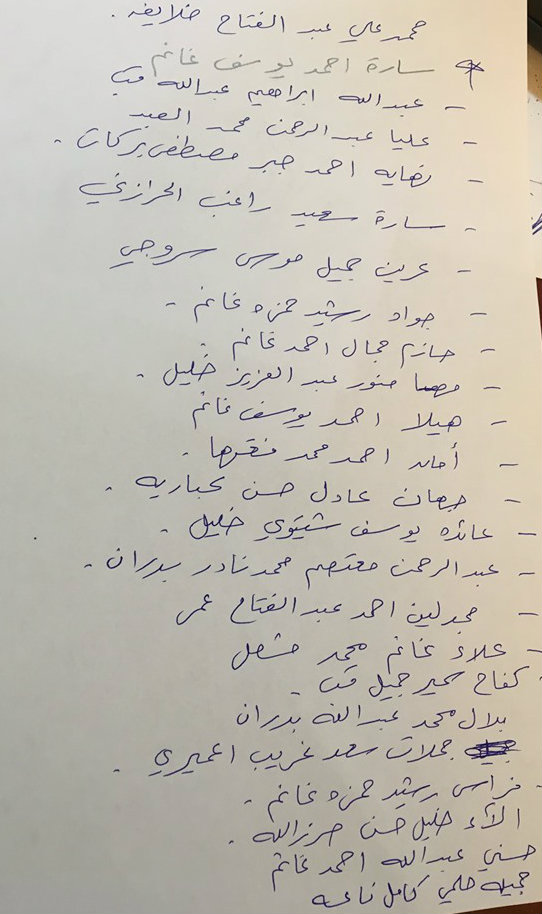 محمد علي عبد الفتاح خلايفه.
سارة احمد يوسف غانم
- عبدالله ابراهيم عبدالله قب
- عليا عبد الرحمن محمد العبد
- نهايه احمد جبر مصطفى بركات.
- سارة سعيد راغب الحرازني
- عرين جميل موسى سروجي
- جواد رشيد حمزه غانم.
- حازم جمال احمد غانم.
- مهما منور عبد العزيز خليل.
- هيلا احمد يوسف غانم
- أماند احمد محمد فقها.
- جهان عادل حسن جباريه.
- عائده يوسف شتيوي خليل.
- عبدالرحمن معتصم محمد نادر بدران.
- مجدلين احمد عبد الفتاح عمر
- علاء غانم محمد مشعل
كفاح سمير جميل قب.
بلال محمد عبدالله بدران
جملات سعد غريب اعميري.
- فراس رشيد حمزه غانم.
الآء خليل حسن حرزالله.
حسني عبدالله احمد غانم
جميله حلمي كامل ناعسه